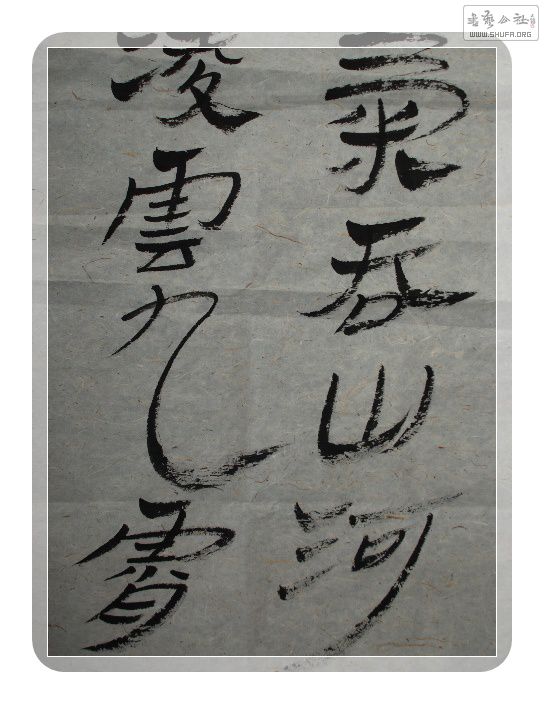 氣吞山河
凌雲九霄
WWW.SHUFA.ORG